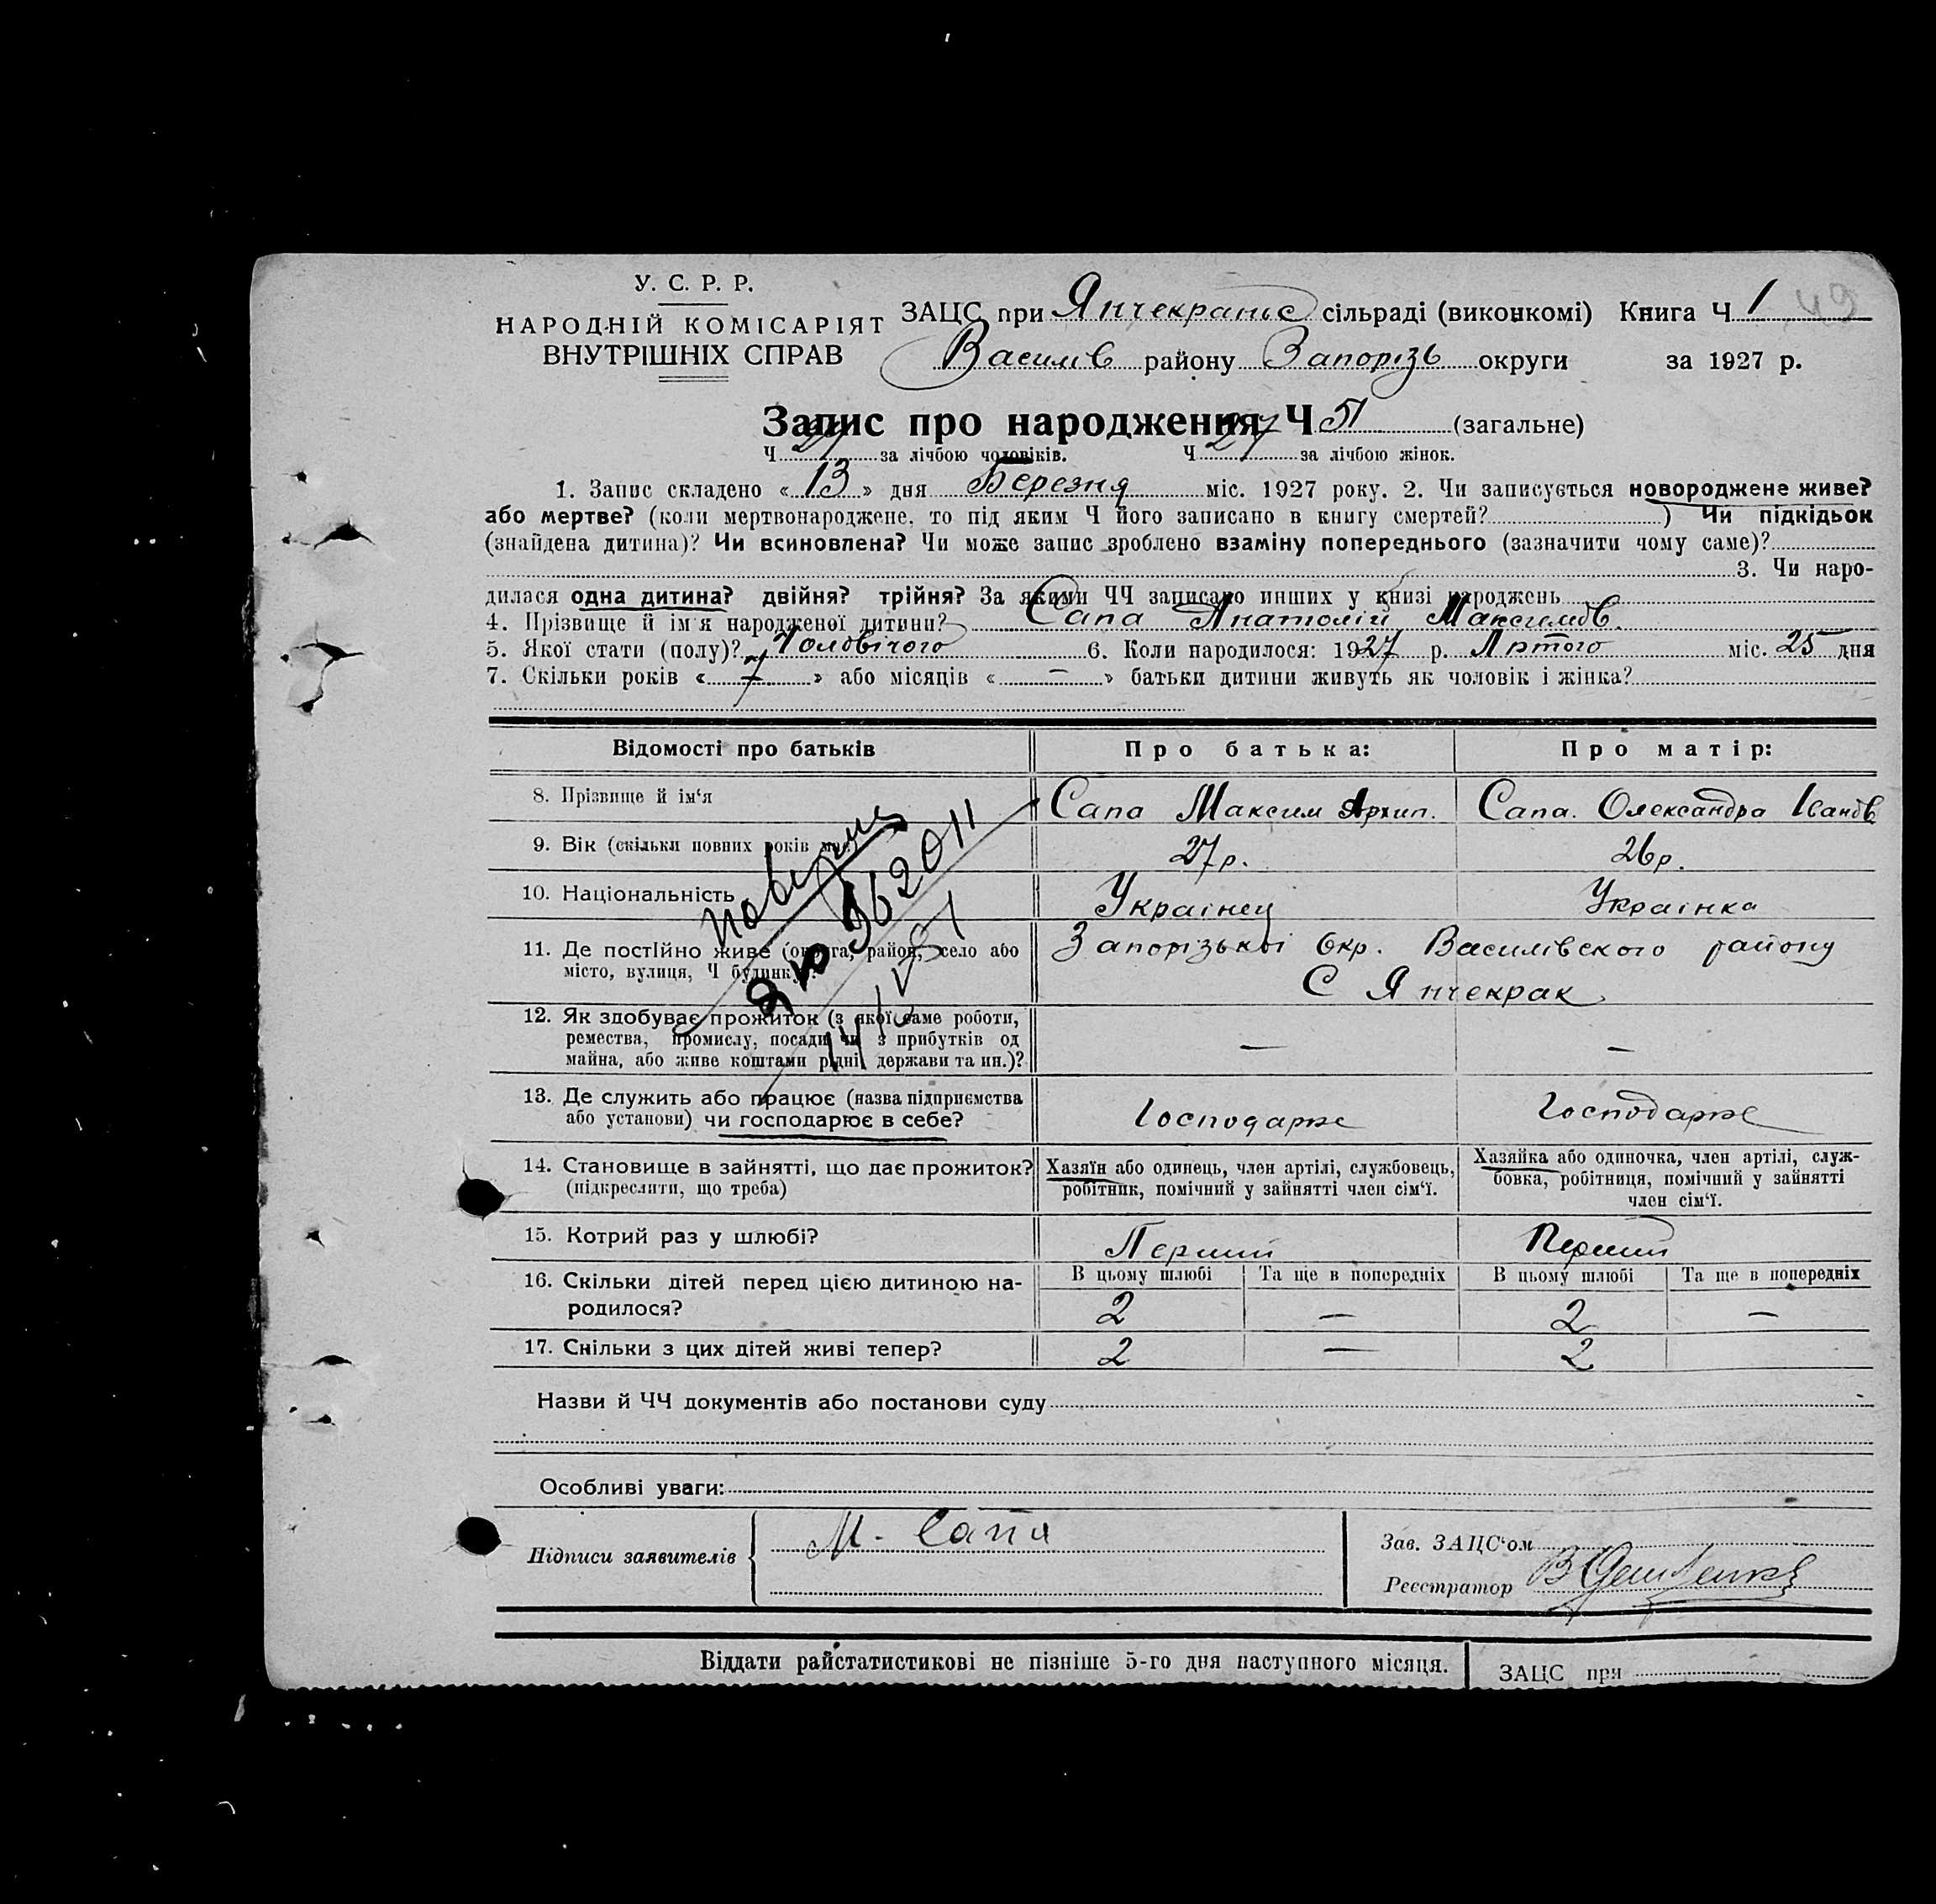 У. С. Р. Р.
НАРОДНІЙ КОМІСАРІЯТ
ВНУТРІШНІХ СПРАВ
ЗАЦС при Янчекрацьк сільраді (виконкомі) Книга Ч 1 49
Василів району Запорізь округи за 1927 р.
Запис про народження Ч 51 (загальне)
Ч за лічбою чоловіків. Ч 27 за лічбою жінок.
1. Запис складено « 13 » дня Березня міс. 1927 року. 2. Чи записується новороджене живе?
або мертве? (коли мертвонароджене, то під яким Ч його записано в книгу смертей? ) Чи підкідьок
(знайдена дитина)? Чи всиновлена? Чи може запис зроблено взаміну попереднього (зазначити чому саме)?
3. Чи наро-
дилася одна дитина? двійня? трійня? За якими ЧЧ записано инших у книзі народжень
4. Прізвище й ім'я народженої дитини? Сапа Анатолій Максимов.
5. Якої стати (полу)? Чоловічого 6. Коли народилося: 1927 р. Лютого міс. 25 дня
7. Скільки років « 7 » або місяців « — » батьки дитини живуть як чоловік і жінка?
Відомості про батьків Про батька: Про матір:
8. Прізвище й ім'я Сапа Максим Архип. Сапа. Олександра Іванов
9. Вік (скільки повних років має) 27 р. 26 р.
10. Національність Українец Українка
11. Де постійно живе (округа, район, село або Запорізької Окр. Василівского району
місто, вулиця, Ч будинку)? С Янчекрак
12. Як здобуває прожиток (з якої саме роботи,
ремества, промислу, посади чи з прибутків од — —
майна, або живе коштами рідні держави та ин.)?
13. Де служить або працює (назва підприємства
або установи) чи господарює в себе? Господарює Господарює
14. Становище в зайнятті, що дає прожиток? Хазяїн або одинець, член артілі, службовець, Хазяйка або одиночка, член артілі, служ-
(підкреслити, що треба) робітник, помічний у зайнятті член сім'ї. бовка, робітниця, помічний у зайнятті
член сім'ї.
15. Котрий раз у шлюбі? Перший Перший
16. Скільки дітей перед цією дитиною на- В цьому шлюбі Та ще в попередніх В цьому шлюбі Та ще в попередніх
родилося? 2 — 2 —
17. Скільки з цих дітей живі тепер? 2 — 2
Назви й ЧЧ документів або постанови суду
Особливі уваги:
Підписи заявителів М. Сапа
Зав. ЗАЦС'ом
Реєстратор
Віддати райстатистикові не пізніше 5-го дня наступного місяця. ЗАЦС при